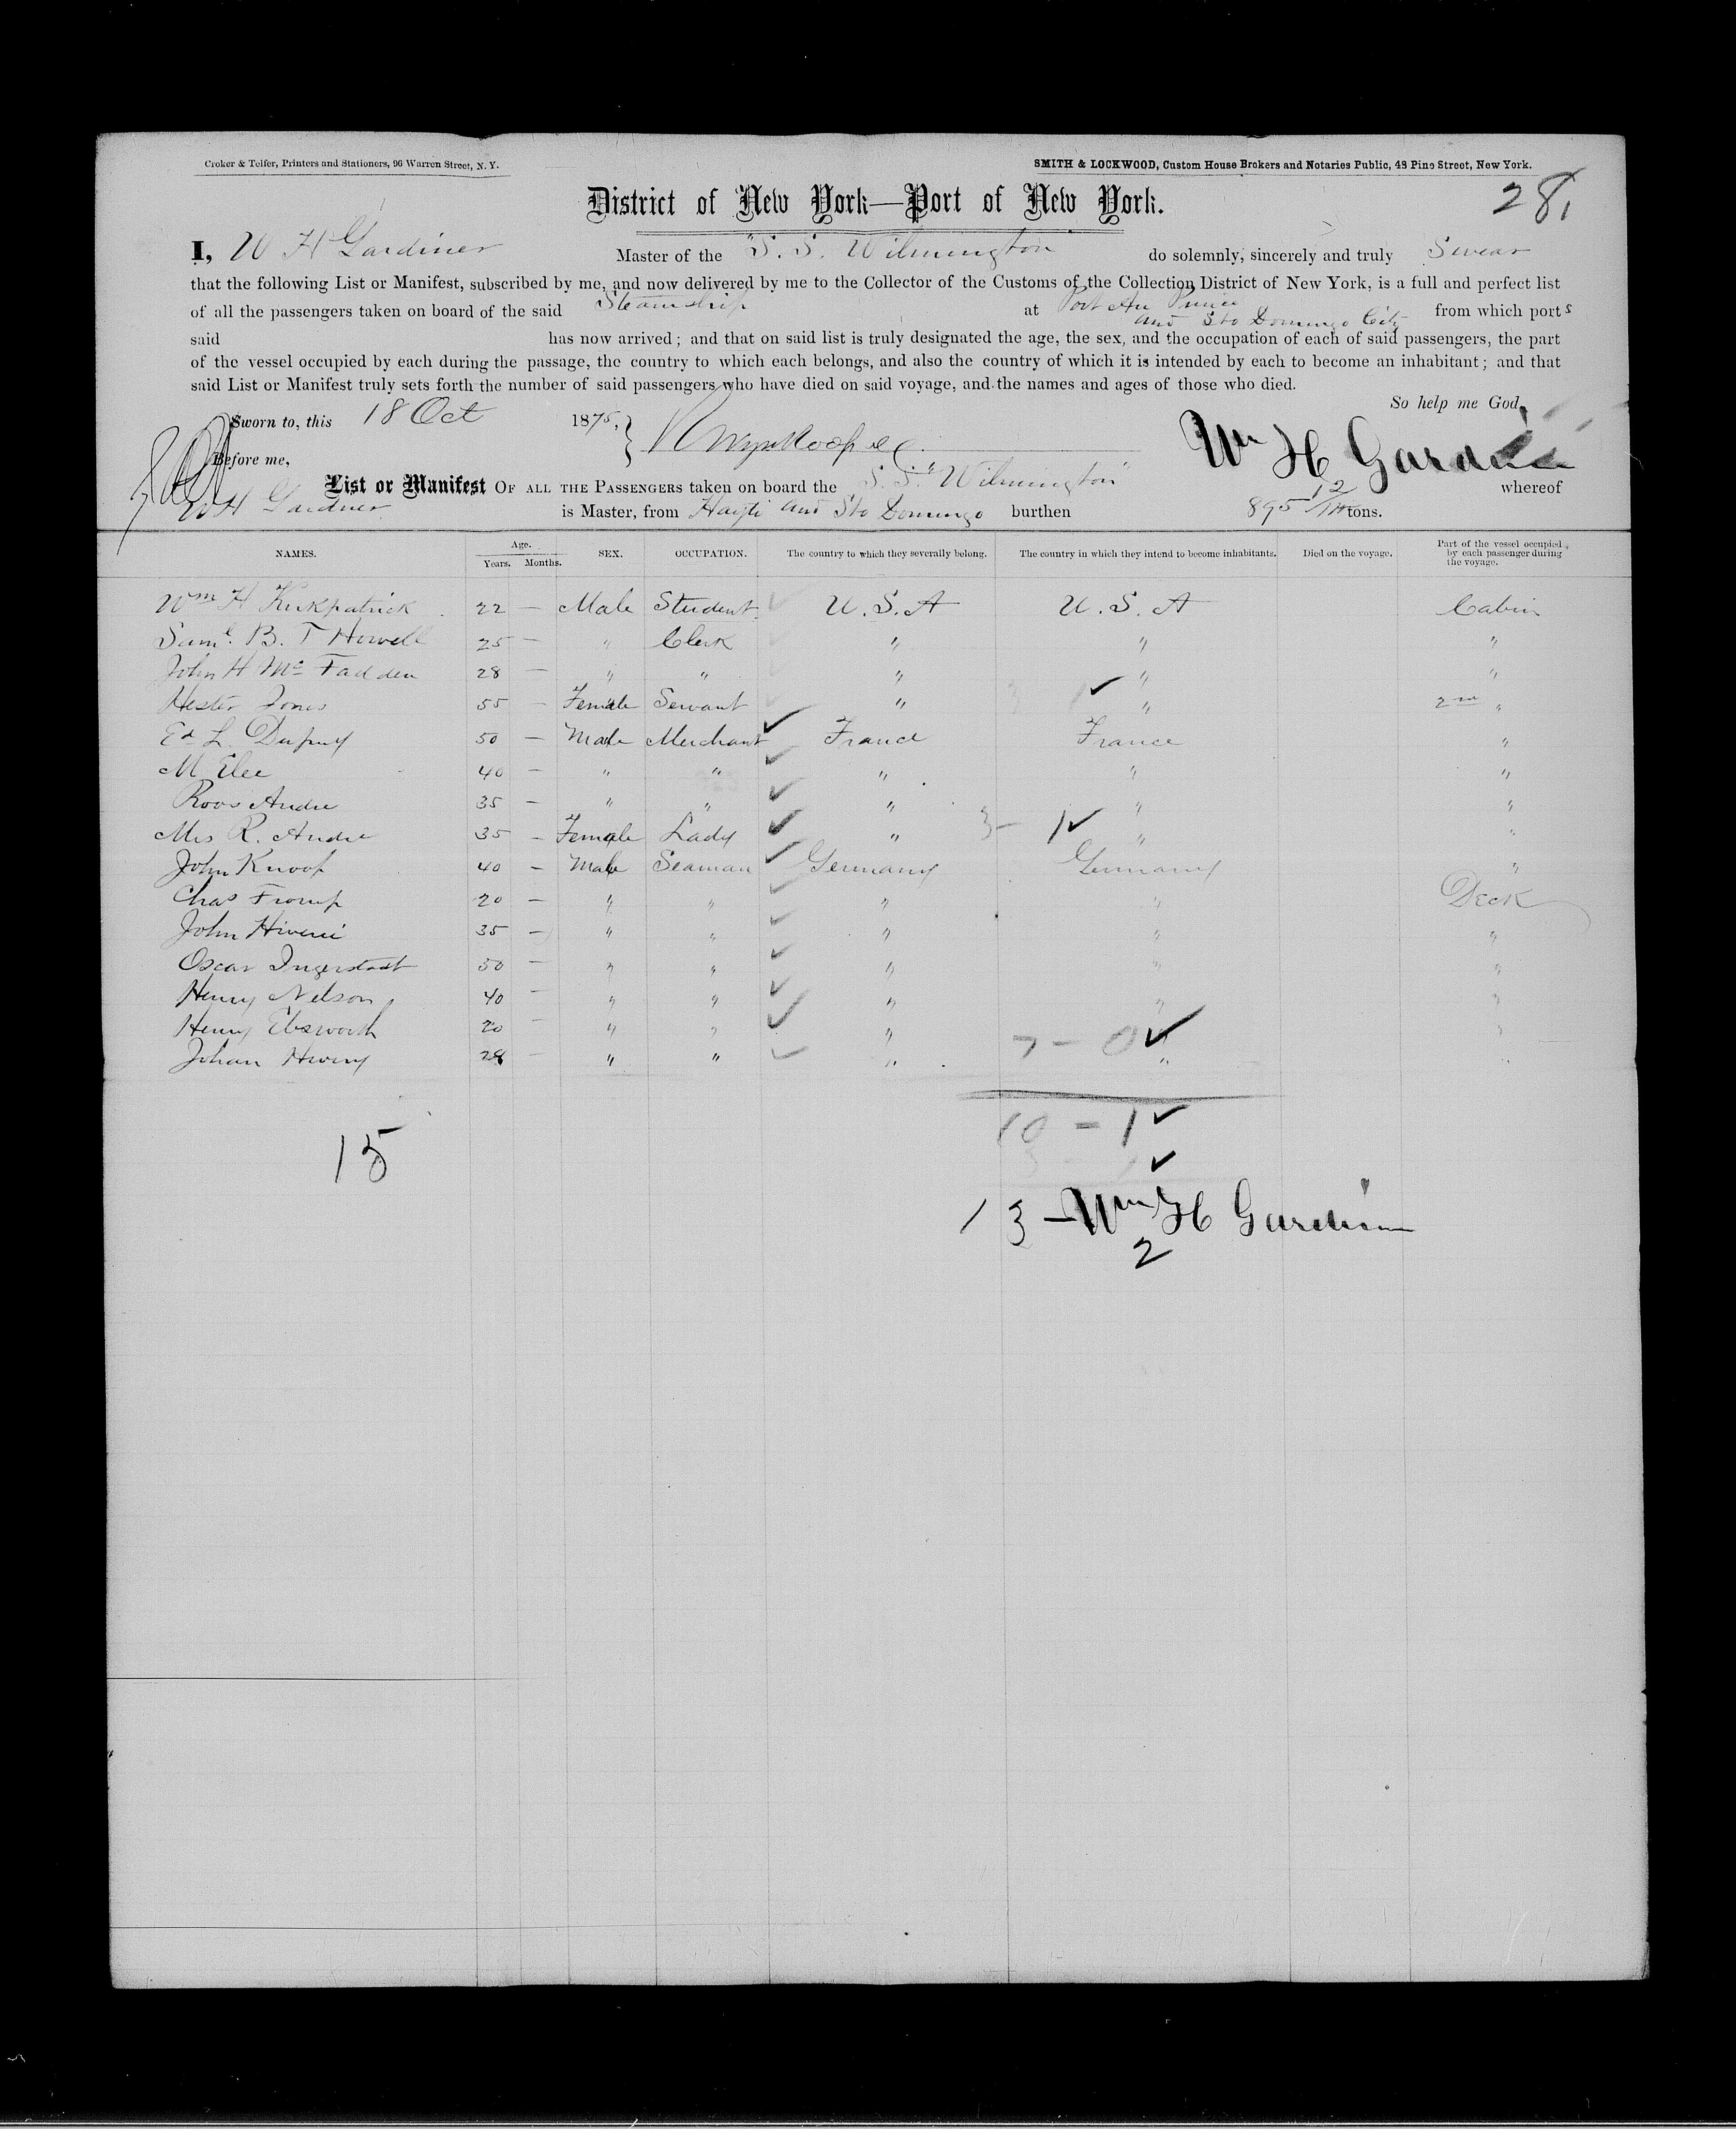 Croker & Telfer, Printers and Stationers, 96 Warren Street, N. Y.
SMITH & LOCKWOOD, Custom House Brokers and Notaries Public, 48 Pine Street, New York.
28,
District of New York—Port of New York.
I, W H Gardiner Master of the "S. S. Wilmington" do solemnly, sincerely and truly Swear
that the following List or Manifest, subscribed by me, and now delivered by me to the Collector of the Customs of the Collection District of New York, is a full and perfect list
of all the passengers taken on board of the said Steamship at Port Au Prince and Sto Domingo City from which ports
said has now arrived; and that on said list is truly designated the age, the sex, and the occupation of each of said passengers, the part
of the vessel occupied by each during the passage, the country to which each belongs, and also the country of which it is intended by each to become an inhabitant; and that
said List or Manifest truly sets forth the number of said passengers who have died on said voyage, and the names and ages of those who died.
So help me God,
Sworn to, this 18 Oct 1875,
Before me,
Wm H Gardiner
List or Manifest OF ALL THE PASSENGERS taken on board the S. S. "Wilmington" whereof
W H Gardiner is Master, from Hayti and Sto Domingo burthen 895 tons.
NAMES. Age. Years. Months. SEX. OCCUPATION. The country to which they severally belong. The country in which they intend to become inhabitants. Died on the voyage. Part of the vessel occupied by each passenger during the voyage.
Wm H Kirkpatrick 22 — Male Student U.S.A U.S.A Cabin
Saml. B. T Howell 25 — " Clerk " " "
John H Mc Fadden 28 — " " " " "
Hester Jones 55 — Female Servant " " 2nd "
Ed L. Dupuy 50 — Male Merchant France France "
M Elee 40 — " " " " "
Roos Andre 35 — " " " " "
Mrs R. Andre 35 — Female Lady " 3- 1 " "
John Knoop 40 — Male Seaman Germany Germany "
Chas Fromp 20 — " " " " Deck
John 35 — " " " " "
Oscar Ingerstadt 50 — " " " " "
Henry Nelson 40 — " " " " "
Henry Ebsworth 20 — " " " "
Johan 28 — " " " 7 - 0 " "
10 - 1
15
13 - Wm H Gardiner
2